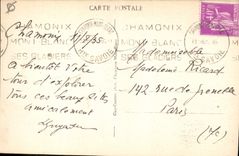 CARTE POSTALE
CHAMONIX
MONT-BLANC
SES GLACIERS
CHAMONIX
MONT-BLANC
SES GLACIERS
Chamonix 21/8/35
A bientôt votre
tour d'explorer
tous ces beaux sites
amicalement
Mademoiselle
Madeleine Ricard
142 rue de Grenelle
Paris
(7e)